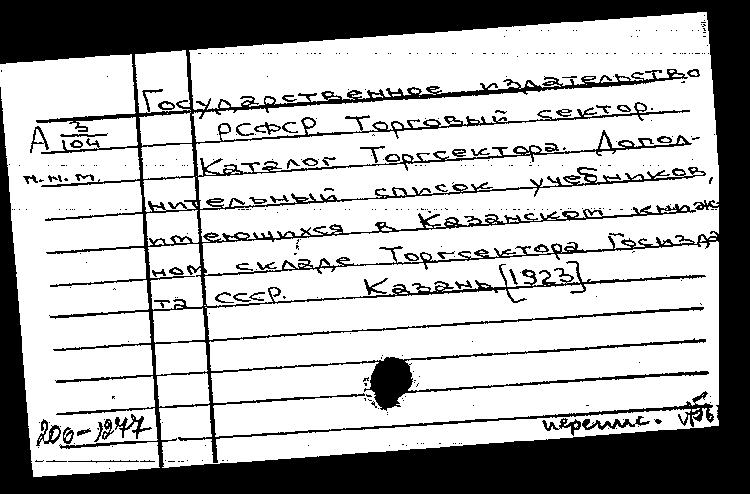 Государственное издательство
А 3/104 РСФСР Торговый сектор.
Каталог Торгсектора. Допол-
н.н.т. нительный список учебников,
имеющихся в Казанском книж
ном складе Торгсектора Госизда
та СССР. Казань, [1923].
200-1277
перепис.